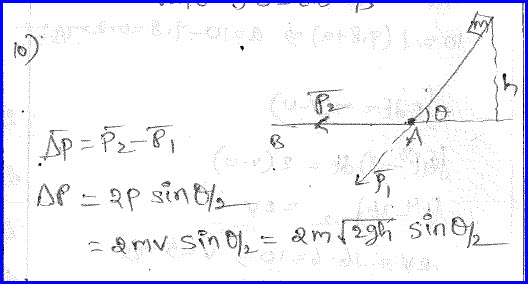 10)
m
h
P̅₂
θ
B
A
P̅₁
Δ̅p̅ = P̅₂ - P̅₁
ΔP = 2P sin θ/2
= 2mv sin θ/2 = 2m√2gh sin θ/2